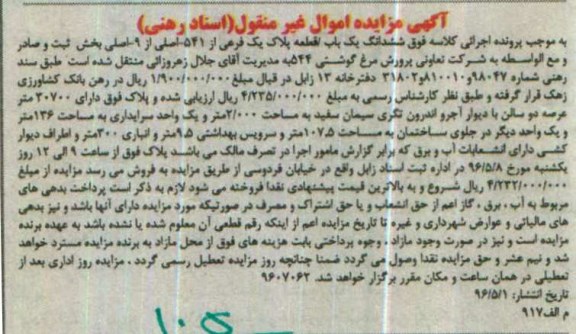 آگهی مزایده اموال غیر منقول(اسناد رهنی)
به موجب پرونده اجرائی کلاسه فوق ششدانگ یک باب /قطعه پلاک یک فرعی از ۵۴۱-اصلی از ۹-اصلی بخش ثبت و صادر
و مع الواسطه به شرکت تعاونی پرورش مرغ گوشتی ۵۴۴به مدیریت آقای جلال زهروزائی منتقل شده است طبق سند
رهنی شماره ۹۸۰۴۷و۸۱۰۰۱۰و۳۱۸۰۲ دفترخانه ۱۳ زابل در قبال مبلغ ۱/۹۰۰/۰۰۰/۰۰۰ ریال در رهن بانک کشاورزی
زهک قرار گرفته و طبق نظر کارشناس رسمی به مبلغ ۴/۲۳۵/۰۰۰/۰۰۰ ریال ارزیابی شده و پلاک فوق دارای ۳۰۷۰۰ متر
عرصه دو سالن با دیوار آجرو اندرون تگری سیمان سفید به مساحت ۲/۰۰۰متر و یک واحد سرایداری به مساحت ۱۳۶متر
و یک واحد دیگر در جلوی ساختمان به مساحت ۱۰۷.۵متر و سرویس بهداشتی ۹.۵متر و انباری ۳۰۰متر و اطراف دیوار
کشی دارای انشعابات آب و برق که برابر گزارش مامور اجرا در تصرف مالک می باشد پلاک فوق از ساعت ۹ الی ۱۲ روز
یکشنبه مورخ ۹۶/۵/۸ در اداره ثبت اسناد زابل واقع در خیابان فردوسی از طریق مزایده به فروش می رسد مزایده از مبلغ
۴/۲۳۲/۰۰۰/۰۰۰ ریال شروع و به بالاترین قیمت پیشنهادی نقدا فروخته می شود لازم به ذکر است پرداخت بدهی های
مربوط به آب ، برق ، گاز اعم از حق انشعاب و یا حق اشتراک و مصرف در صورتیکه مورد مزایده دارای آنها باشد و نیز بدهی
های مالیاتی و عوارض شهرداری و غیره تا تاریخ مزایده اعم از اینکه رقم قطعی آن معلوم شده یا نشده باشد به عهده برنده
مزایده است و نیز در صورت وجود مازاد ، وجوه پرداختی بابت هزینه های فوق از محل مازاد به برنده مزایده مسترد خواهد
شد و نیم عشر و حق مزایده نقدا وصول می گردد ضمنا چنانچه روز مزایده تعطیل رسمی گردد ، مزایده روز اداری بعد از
تعطیلی در همان ساعت و مکان مقرر برگزار خواهد شد. ۹۶۰۷۰۶۲
تاریخ انتشار: ۹۶/۵/۱
م الف۹۱۷